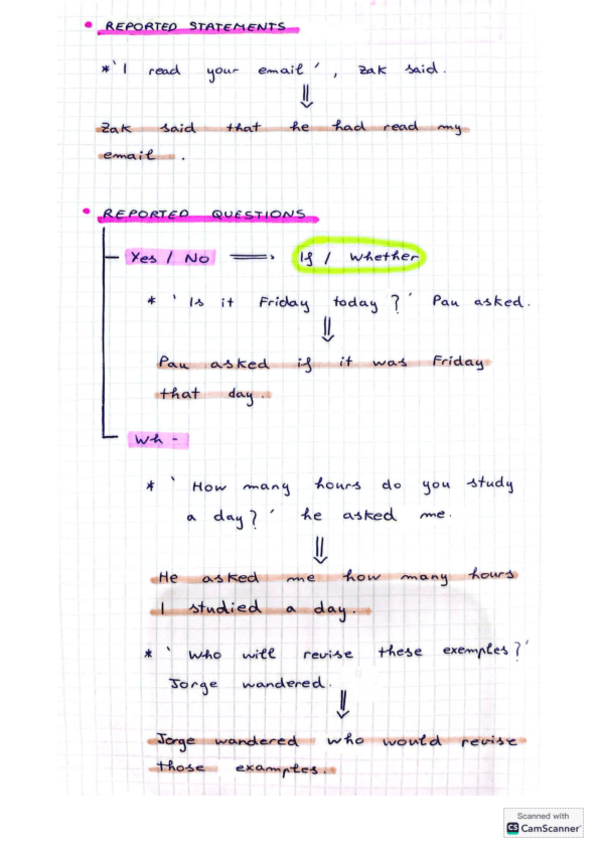 • REPORTED STATEMENTS
* ' I read your email ', Zak said.
⇓
Zak said that he had read my
email.
• REPORTED QUESTIONS
Yes / No ⟹ If / whether
* ' Is it Friday today ?' Pau asked.
⇓
Pau asked if it was Friday
that day.
Wh -
* ' How many hours do you study
a day?' he asked me.
⇓
He asked me how many hours
I studied a day.
* ' Who will revise these exemples?'
Jorge wandered.
⇓
Jorge wandered who would revise
those examples.
Scanned with
CS CamScanner